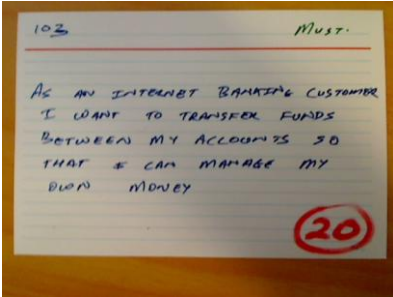 103 MUST.
AS AN INTERNET BANKING CUSTOMER
I WANT TO TRANSFER FUNDS
BETWEEN MY ACCOUNTS SO
THAT I CAN MANAGE MY
OWN MONEY
20